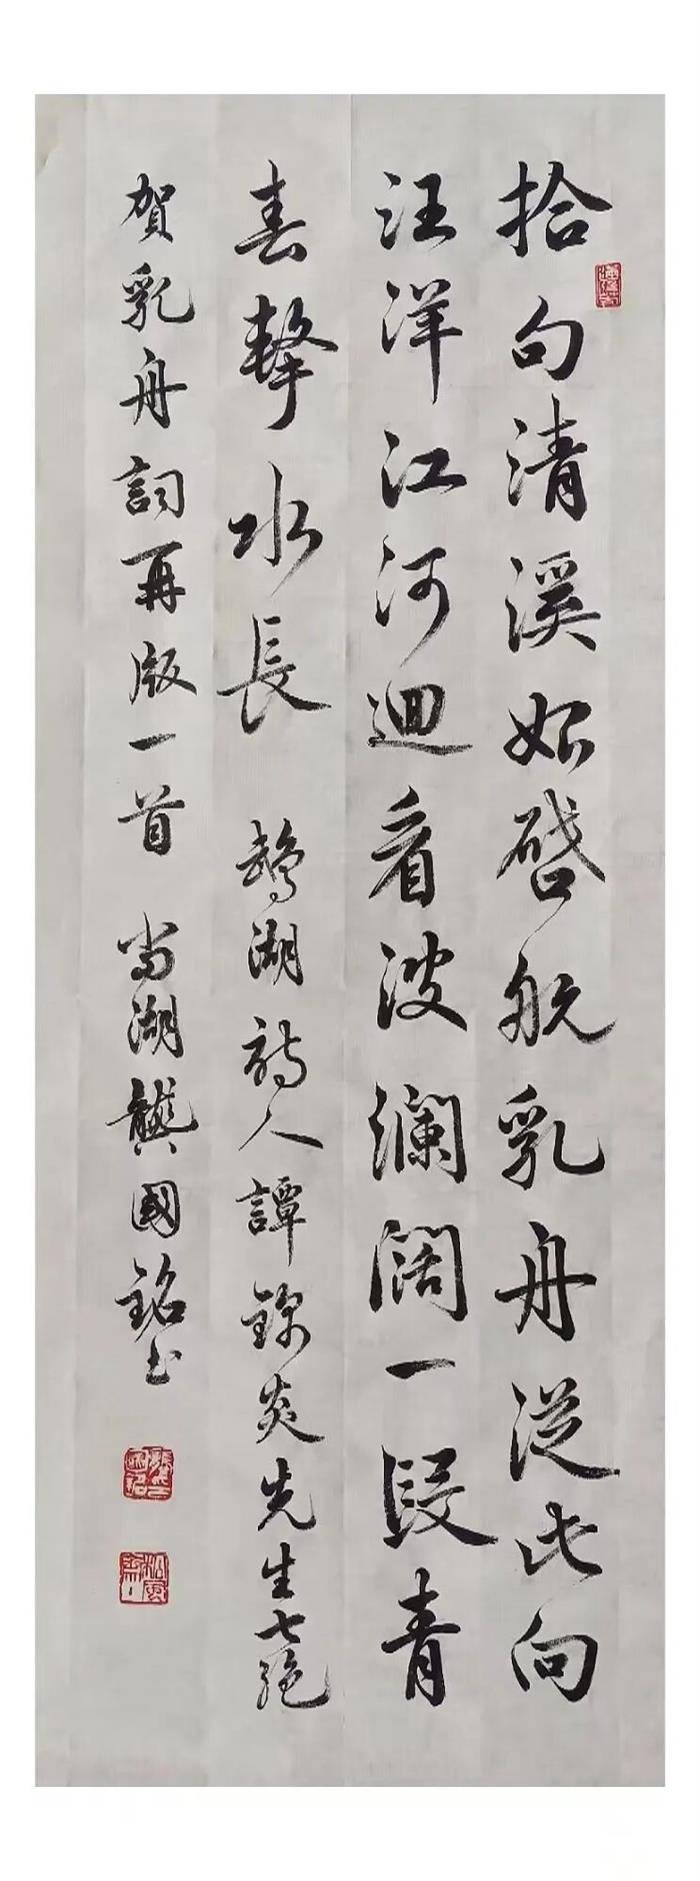 拾句清溪始啓航乳舟從此向
汪洋江河迴看波瀾闊一段青
春擊水長 鵡湖詩人譚錦炎先生七絕
賀乳舟詞再版一首 當湖龔國銘書